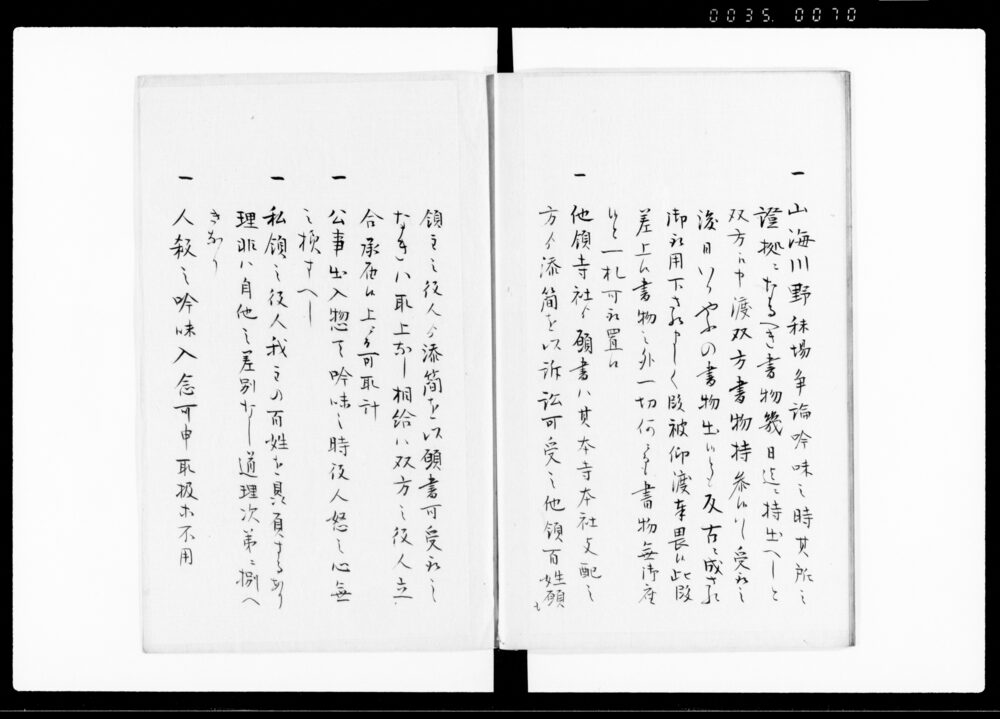 0035 0070
一 山海川野秣場争論吟味之時其所之
證拠ニなるへき書物幾日迄ニ持出へしと
双方江申渡双方書物持参候ハヽ受取之
後日いかやふの書物出候とも反古ニ成され
御取用下され申しく段被仰渡奉畏候此段
差上候書物之外一切何ニても書物無御座
候と一札可取置候
一 他領寺社より願書ハ其本寺本社支配之
方より添簡を以訴訟可受之他領百姓願も
領主之役人より添簡を以願書可受取之
なきハ取上なし相給ハ双方之役人立
合承届候上ニ而可取計
一 公事出入惣て吟味之時役人怒之心無
之様すへし
一 私領之役人我主の百姓を贔負するあり
理非ハ自他之差別なし道理次第ニ捌へ
きなり
一 人殺之吟味入念可申取扱ホ不用